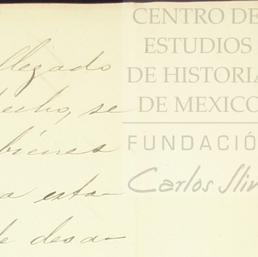 llegado
hecho, se
bienes
a esta-
de desa-
CENTRO DE
ESTUDIOS
DE HISTORIA
DE MEXICO
FUNDACIÓ
Carlos Slim